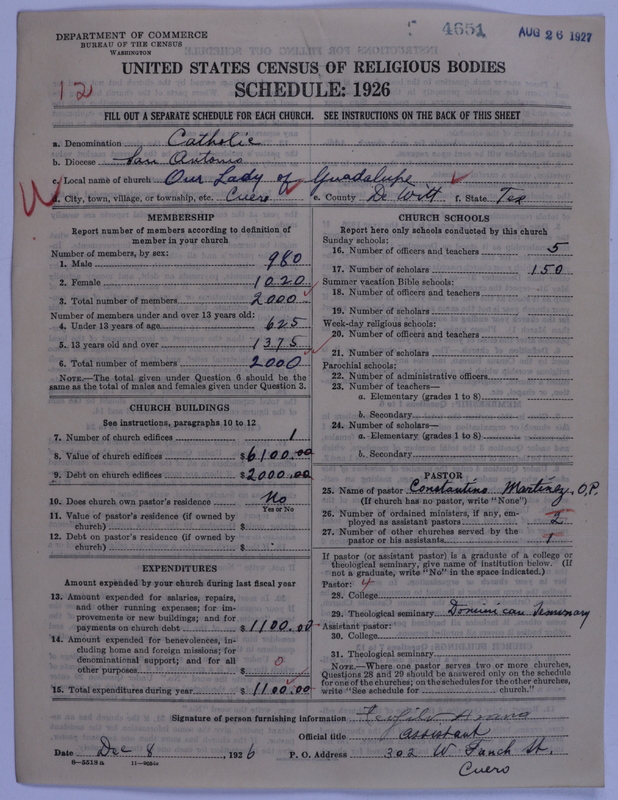 4651
AUG 26 1927
DEPARTMENT OF COMMERCE
BUREAU OF THE CENSUS
WASHINGTON
UNITED STATES CENSUS OF RELIGIOUS BODIES
12
SCHEDULE: 1926
FILL OUT A SEPARATE SCHEDULE FOR EACH CHURCH. SEE INSTRUCTIONS ON THE BACK OF THIS SHEET
a. Denomination Catholic
b. Diocese San Antonio
c. Local name of church Our Lady of Guadalupe
d. City, town, village, or township, etc. Cuero e. County De Witt f. State Tex
MEMBERSHIP
Report number of members according to definition of
member in your church
Number of members, by sex:
1. Male 980
2. Female 1020
3. Total number of members 2000
Number of members under and over 13 years old:
4. Under 13 years of age 625
5. 13 years old and over 1375
6. Total number of members 2000
NOTE.—The total given under Question 6 should be the
same as the total of males and females given under Question 3.
CHURCH BUILDINGS
See instructions, paragraphs 10 to 12
7. Number of church edifices 1
8. Value of church edifices $6100.00
9. Debt on church edifices $2000.00
10. Does church own pastor's residence No
Yes or No
11. Value of pastor's residence (if owned by
church) $
12. Debt on pastor's residence (if owned by
church) $
EXPENDITURES
Amount expended by your church during last fiscal year
13. Amount expended for salaries, repairs,
and other running expenses; for im-
provements or new buildings; and for
payments on church debt $1100.00
14. Amount expended for benevolences, in-
cluding home and foreign missions; for
denominational support; and for all
other purposes $ 0
15. Total expenditures during year $1100.00
CHURCH SCHOOLS
Report here only schools conducted by this church
Sunday schools:
16. Number of officers and teachers 5
17. Number of scholars 150
Summer vacation Bible schools:
18. Number of officers and teachers
19. Number of scholars
Week-day religious schools:
20. Number of officers and teachers
21. Number of scholars
Parochial schools:
22. Number of administrative officers
23. Number of teachers—
a. Elementary (grades 1 to 8)
b. Secondary
24. Number of scholars—
a. Elementary (grades 1 to 8)
b. Secondary
PASTOR
25. Name of pastor Constantino Martinez, O.P.
(If church has no pastor, write "None")
26. Number of ordained ministers, if any, em-
ployed as assistant pastors 2
27. Number of other churches served by the
pastor or his assistants 1
If pastor (or assistant pastor) is a graduate of a college or
theological seminary, give name of institution below. (If
not a graduate, write "No" in the space indicated.)
Pastor: 4
28. College
29. Theological seminary Dominican Seminary
Assistant pastor:
30. College
31. Theological seminary
NOTE.—Where one pastor serves two or more churches,
Questions 28 and 29 should be answered only on the schedule
for one of the churches; on the schedules for the other churches,
write "See schedule for church."
Signature of person furnishing information
Official title assistant
Date Dec 8, 1926 P. O. Address 302 W. St.
Cuero
8-5518a 11-9051